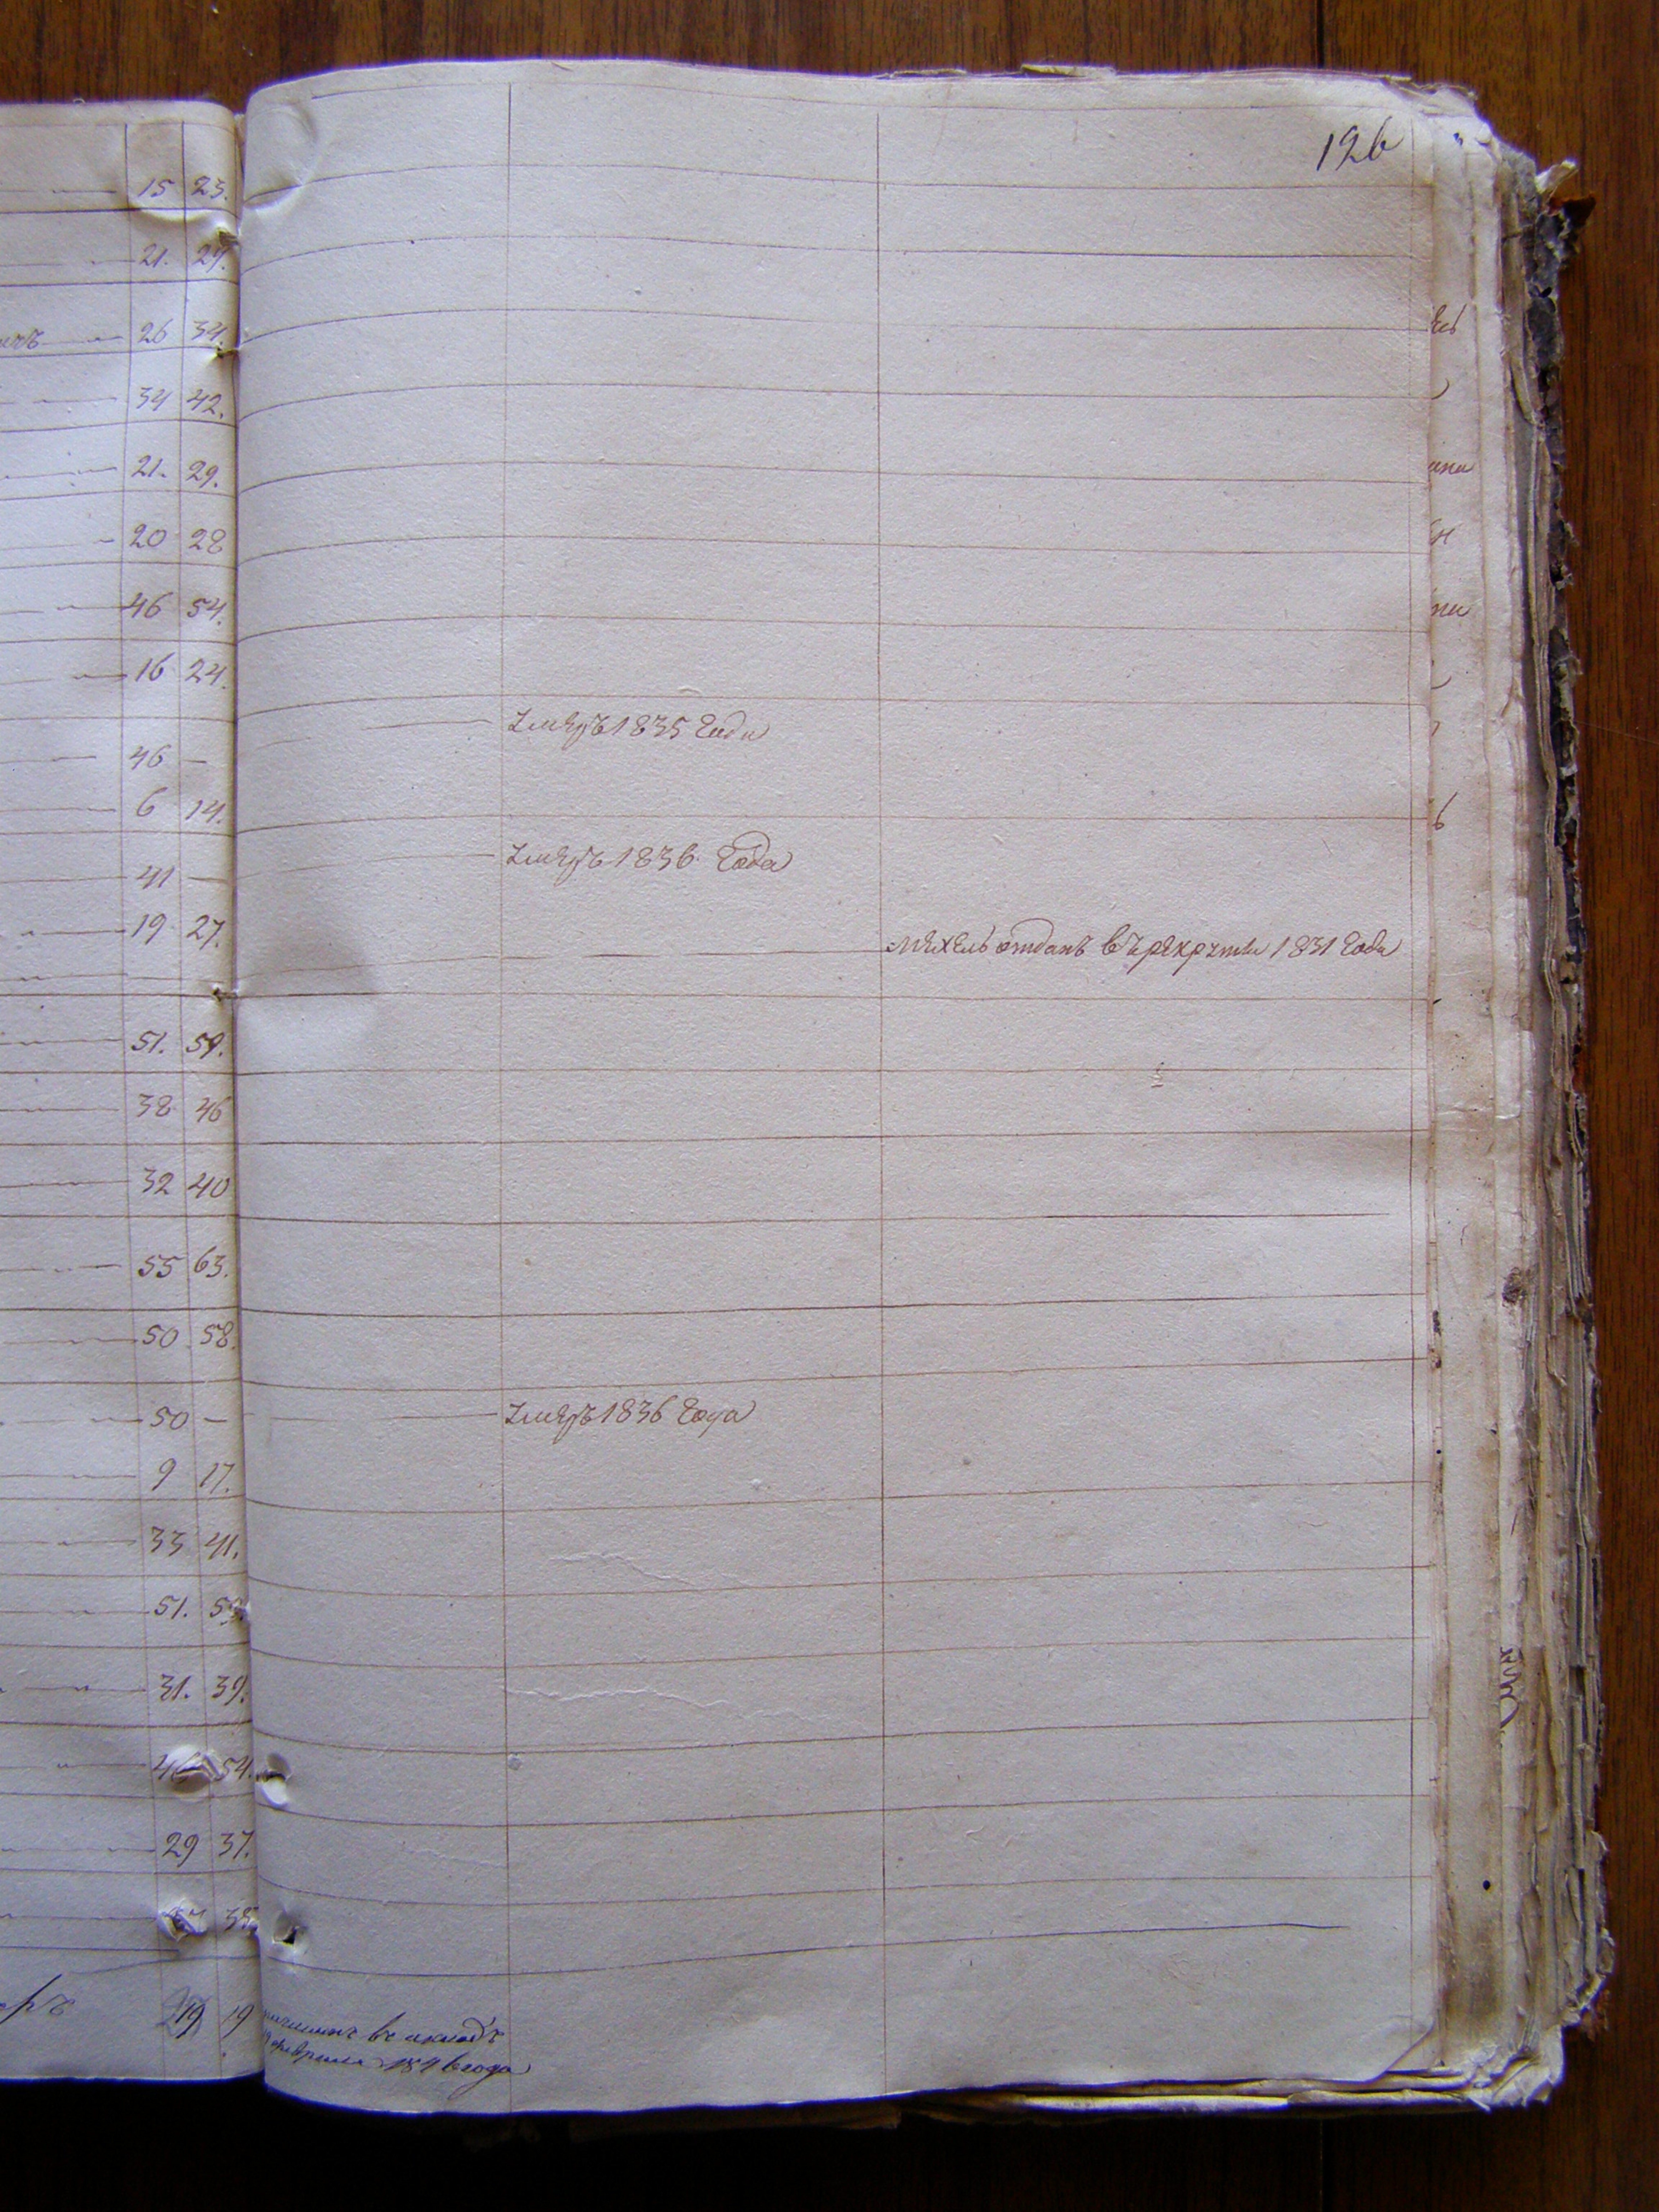 126
15 23.
21. 29.
26 34.
34 42.
21. 29.
20 28
46 54.
16 24.
умеръ 1835 года
46 —
6 14.
умеръ 1836 года
41 —
19 27.
Мехель отданъ въ рекруты 1831 года
51. 59.
38 46
32 40
55 63.
50 58.
50 — умеръ 1836 года
9 17.
33 41.
51. 59.
31. 39.
46 54.
29 37.
19 19
въ окладъ
февраля 1846 года